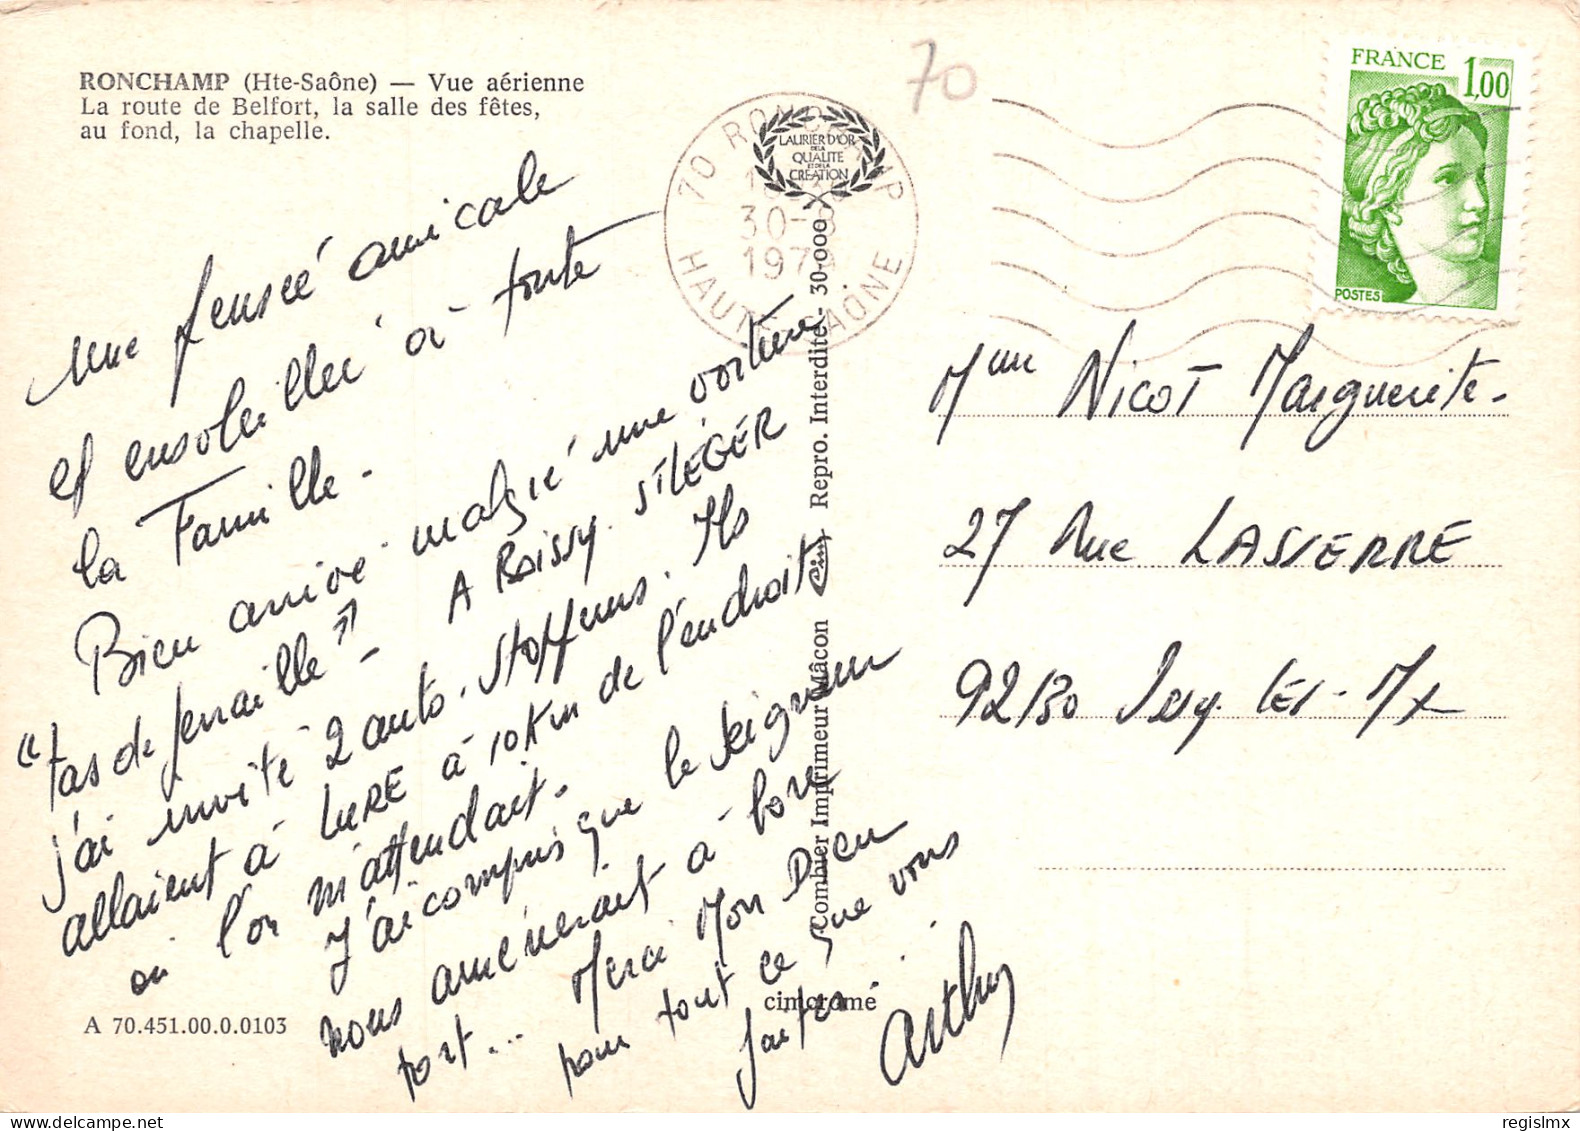 RONCHAMP (Hte-Saône) — Vue aérienne
La route de Belfort, la salle des fêtes,
au fond, la chapelle.
70
70 RONCHAMP
30-8
197
HAUTE-SAÔNE
LAURIER D'OR
DE LA
QUALITE
ET DE LA
CREATION
FRANCE 1,00
POSTES
une pensée amicale
et ensoleillée à toute
la Famille.
Bien arrivé malgré une voiture
"tas de ferraille" - A Roissy. St LÉGER
j'ai invité 2 auto-stoppeurs. Ils
allaient à LURE à 10 Km de l'endroit
où l'on m'attendait.
J'ai compris que le Seigneur
nous amènerait à bon
port... Merci Mon Dieu
pour tout ce que vous
faites.
Arthur
Mme NICOT Marguerite.
27 Rue LASSERRE
92130 Issy. LES-Mx
Combier Imprimeur Mâcon Cim Repro. Interdite - 30-000
cimcrome
A 70.451.00.0.0103
regislmx